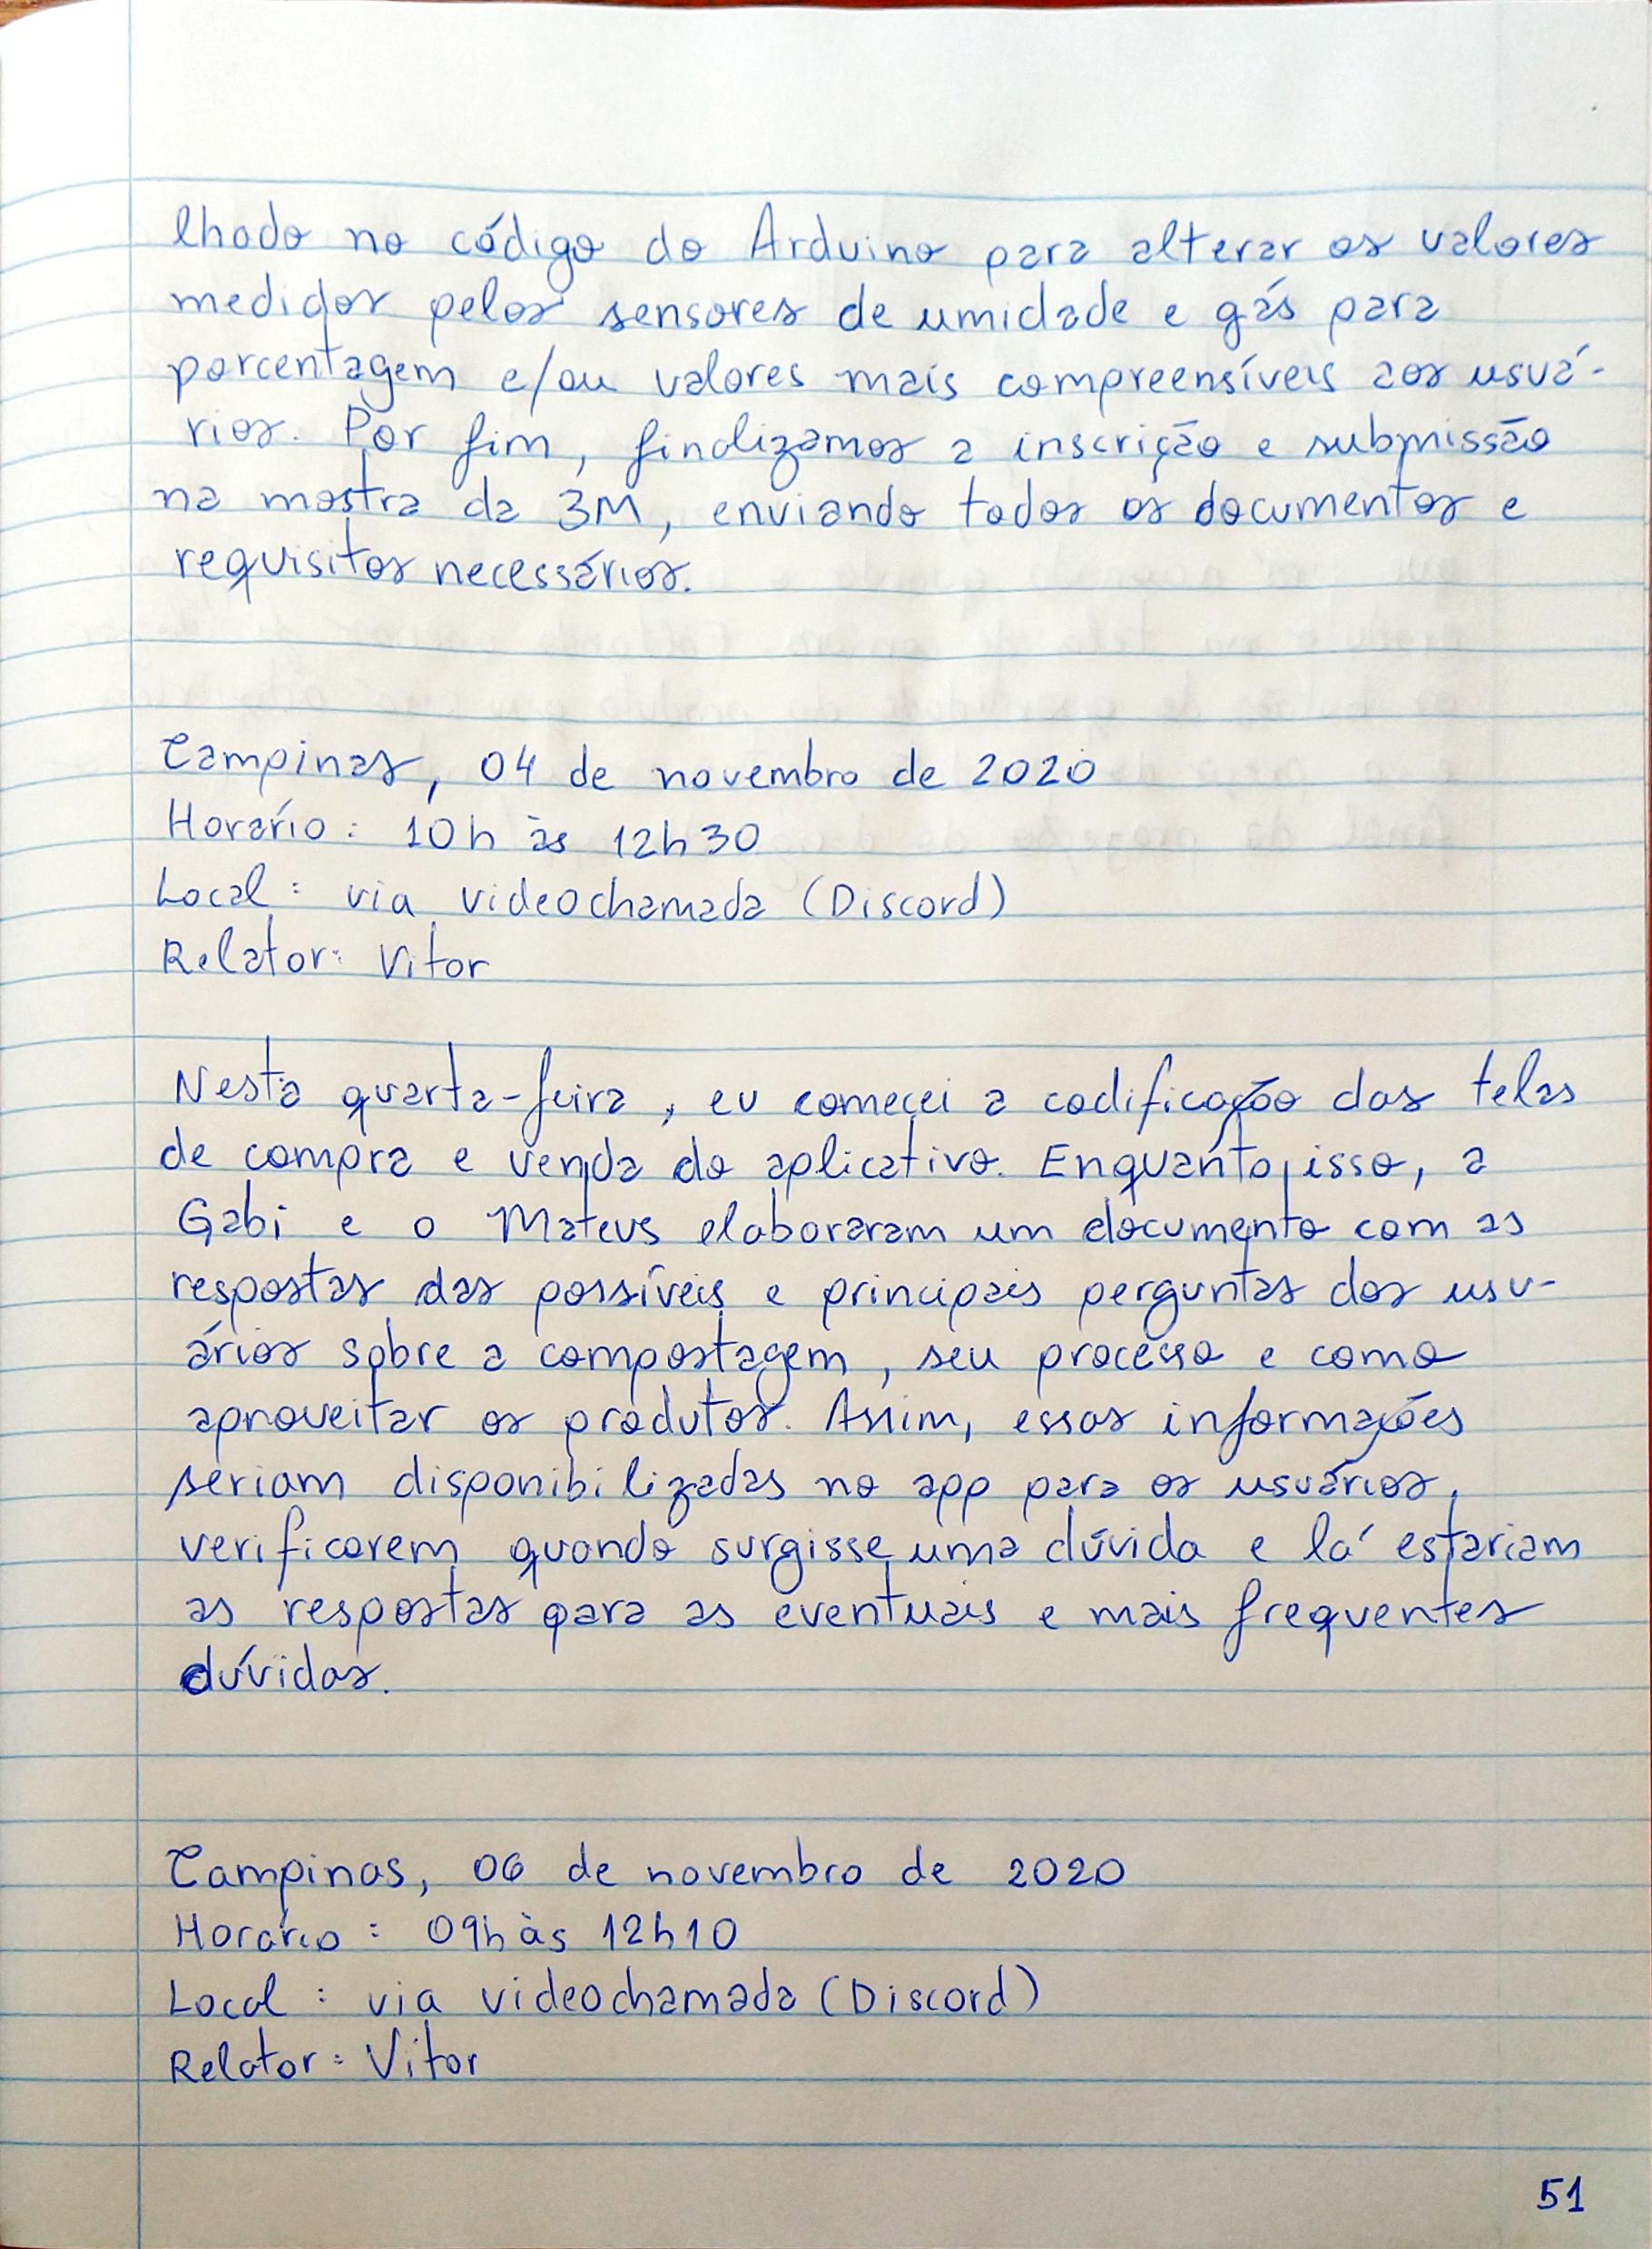 lhado no código do Arduino para alterar os valores
medidos pelos sensores de umidade e gás para
porcentagem e/ou valores mais compreensíveis aos usuá-
rios. Por fim, finalizamos a inscrição e submissão
na mostra da 3M, enviando todos os documentos e
requisitos necessários.
Campinas, 04 de novembro de 2020
Horário: 10h às 12h30
Local: via videochamada (Discord)
Relator: Vitor
Nesta quarta-feira, eu comecei a codificação das telas
de compra e venda do aplicativo. Enquanto isso, a
Gabi e o Mateus elaboraram um documento com as
respostas das possíveis e principais perguntas dos usu-
ários sobre a compostagem, seu processo e como
aproveitar os produtos. Assim, essas informações
seriam disponibilizadas no app para os usuários,
verificarem quando surgisse uma dúvida e lá estariam
as respostas para as eventuais e mais frequentes
dúvidas.
Campinas, 06 de novembro de 2020
Horário: 09h às 12h10
Local: via videochamada (Discord)
Relator: Vitor
51